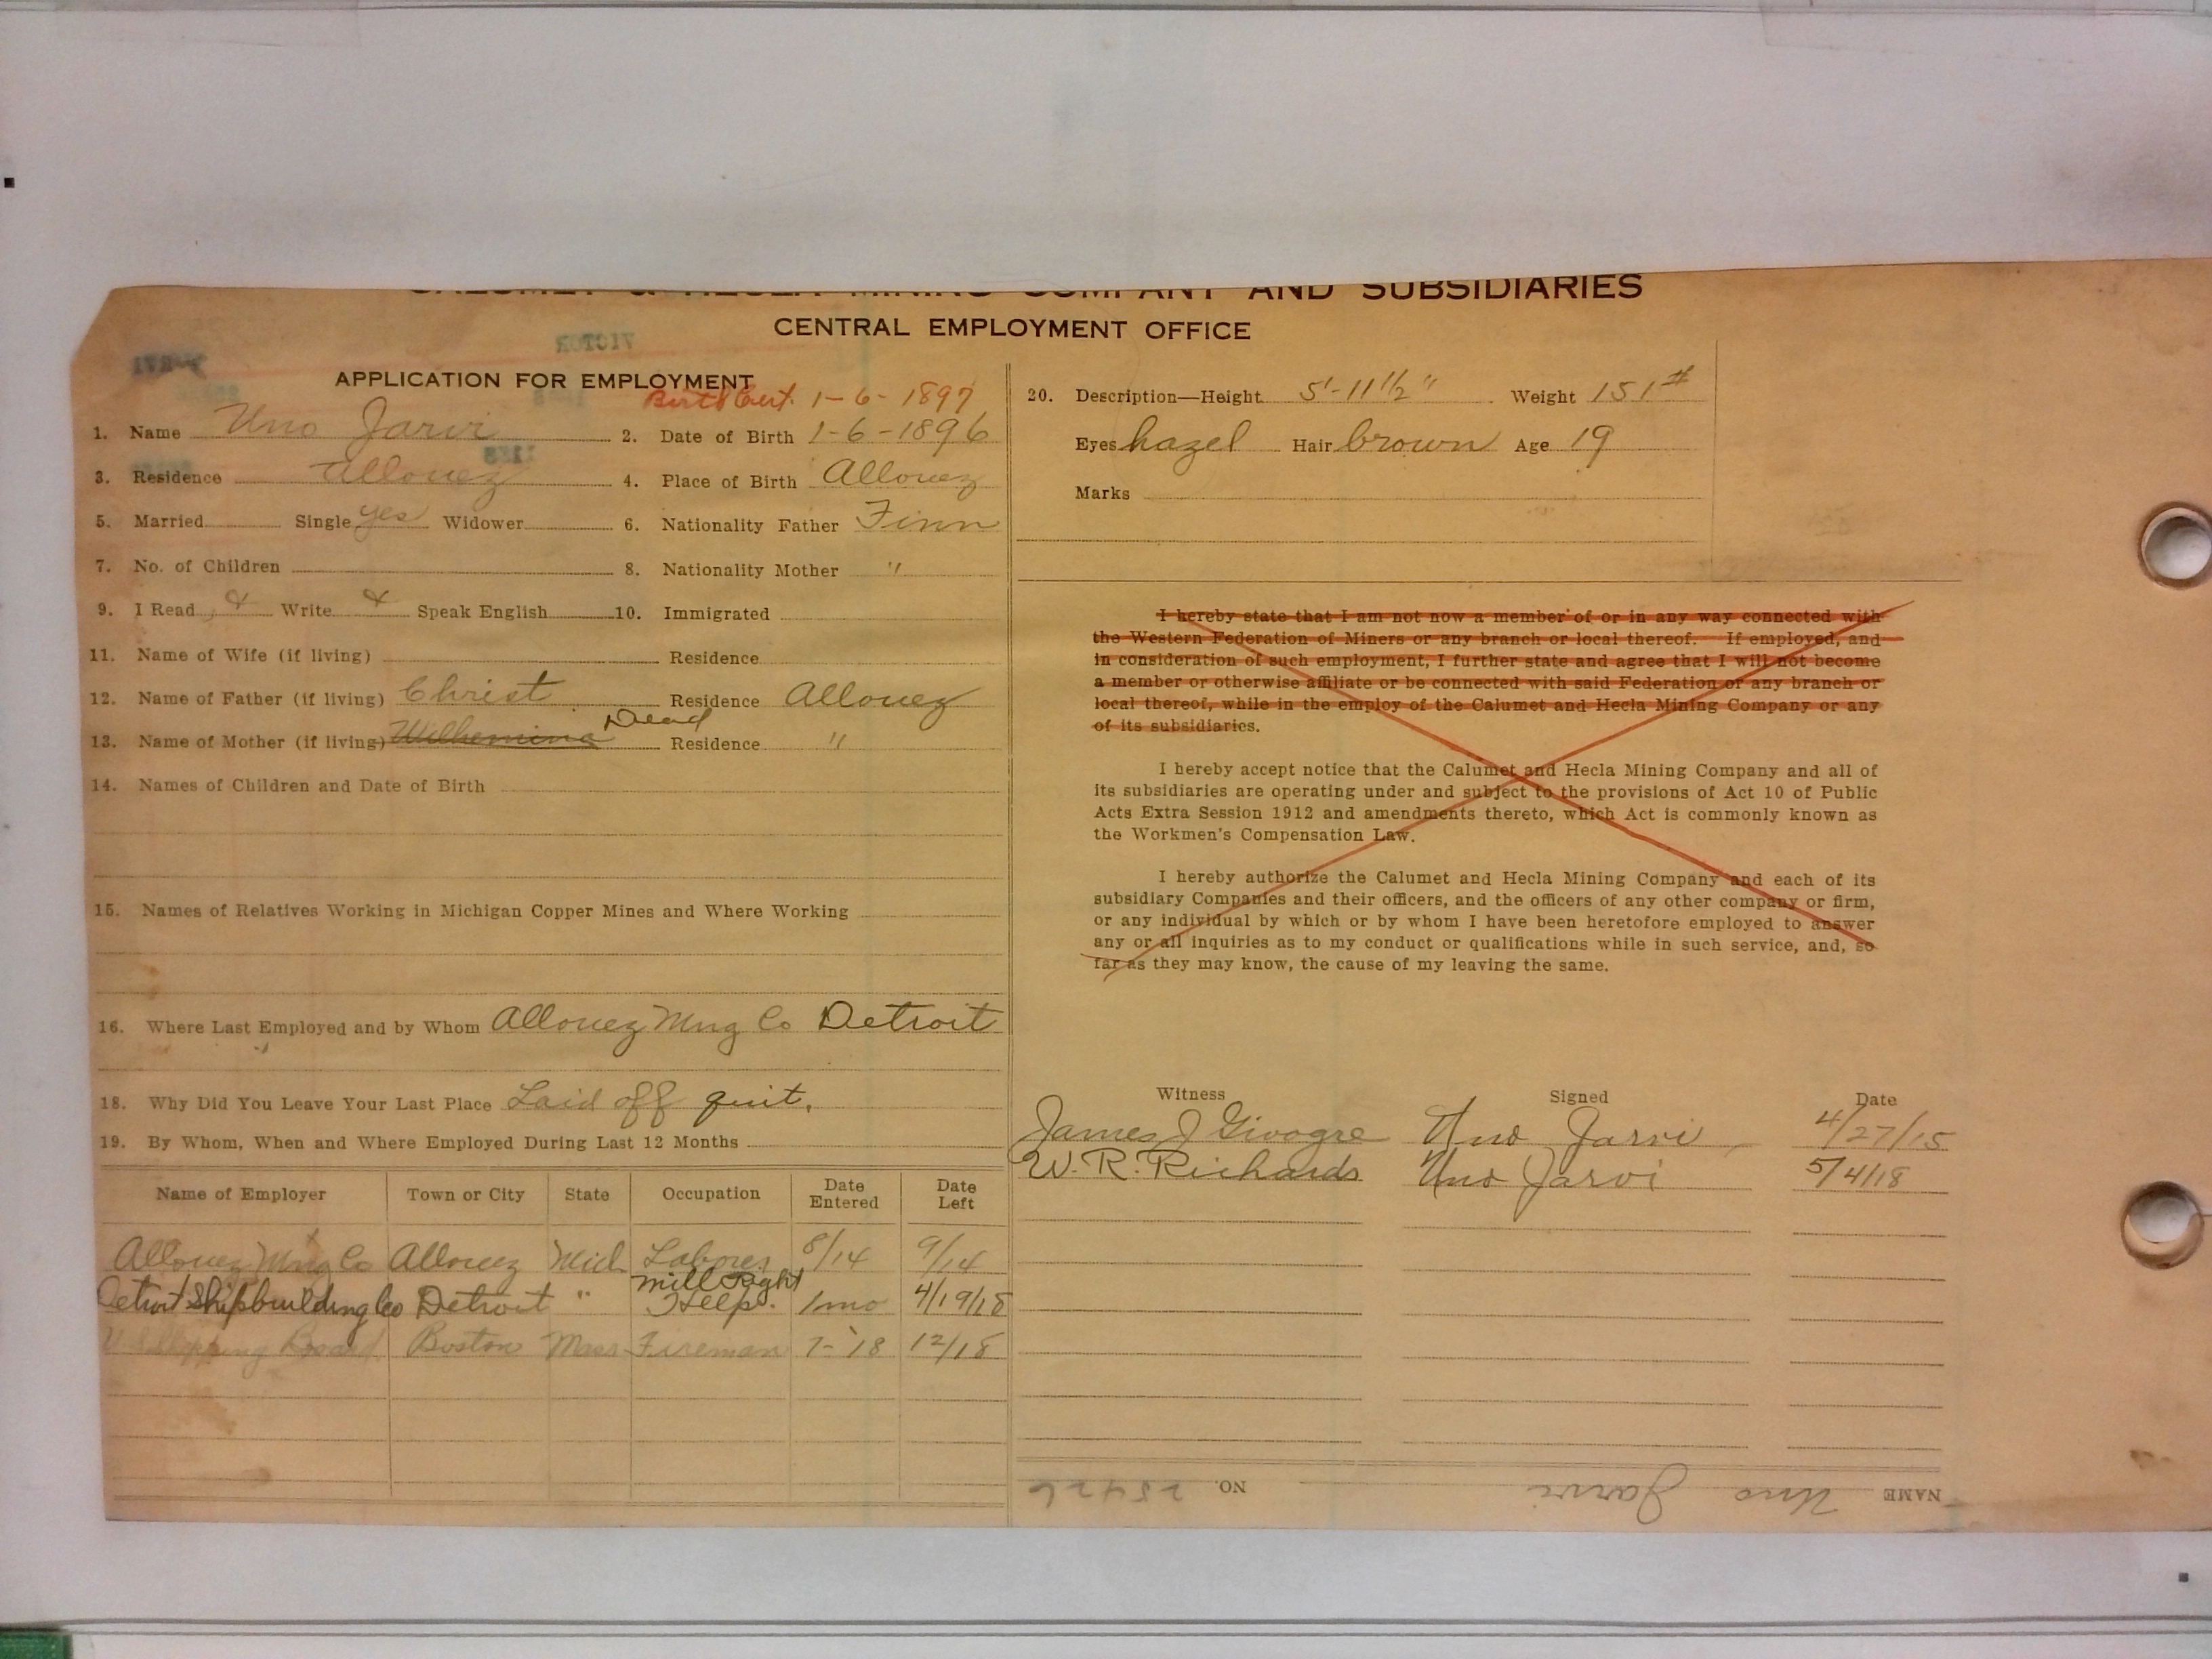 CALUMET & HECLA MINING COMPANY AND SUBSIDIARIES
CENTRAL EMPLOYMENT OFFICE
VICTOR
APPLICATION FOR EMPLOYMENT
Birth Cert. 1-6-1897
1. Name Uno Jarvi 2. Date of Birth 1-6-1896
3. Residence Allouez 4. Place of Birth Allouez
5. Married Single yes Widower 6. Nationality Father Finn
7. No. of Children 8. Nationality Mother "
9. I Read & Write & Speak English 10. Immigrated
11. Name of Wife (if living) Residence
12. Name of Father (if living) Christ Residence Allouez
13. Name of Mother (if living) Wilhemina Dead Residence "
14. Names of Children and Date of Birth
15. Names of Relatives Working in Michigan Copper Mines and Where Working
16. Where Last Employed and by Whom Allouez Mng Co Detroit
18. Why Did You Leave Your Last Place Laid off quit.
19. By Whom, When and Where Employed During Last 12 Months
Name of Employer Town or City State Occupation Date Entered Date Left
Allouez Mng Co Allouez Mich Laborer 8/14 9/14
Detroit Shipbuilding Co Detroit " Mill Right Help. 1 mo 4/19/18
U S Shipping Board Boston Mass Fireman 7-'18 12/18
20. Description—Height 5'-11 1/2" Weight 151#
Eyes hazel Hair brown Age 19
Marks
I hereby state that I am not now a member of or in any way connected with
the Western Federation of Miners or any branch or local thereof. If employed, and
in consideration of such employment, I further state and agree that I will not become
a member or otherwise affiliate or be connected with said Federation or any branch or
local thereof, while in the employ of the Calumet and Hecla Mining Company or any
of its subsidiaries.
I hereby accept notice that the Calumet and Hecla Mining Company and all of
its subsidiaries are operating under and subject to the provisions of Act 10 of Public
Acts Extra Session 1912 and amendments thereto, which Act is commonly known as
the Workmen's Compensation Law.
I hereby authorize the Calumet and Hecla Mining Company and each of its
subsidiary Companies and their officers, and the officers of any other company or firm,
or any individual by which or by whom I have been heretofore employed to answer
any or all inquiries as to my conduct or qualifications while in such service, and, so
far as they may know, the cause of my leaving the same.
Witness Signed Date
James J Uno Jarvi 4/27/15
W. R. Richards Uno Jarvi 5/4/18
NAME Uno Jarvi NO. 25426